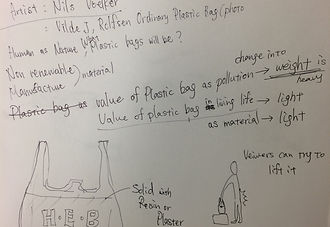 Artist : Nils Voelker
: Vilde J. Rolfsen Ordinary Plastic Bag/photo
Human as Nature, What Plastic bags will be?
Non renewable
Manufacture
material
Plastic bag as value of Plastic bag as pollution → weight is heavy
change into
Value of plastic bag in living life → light
as material → light
Solid with
Resin or
Plaster
H·E·B
Veiwers can try to
lift it